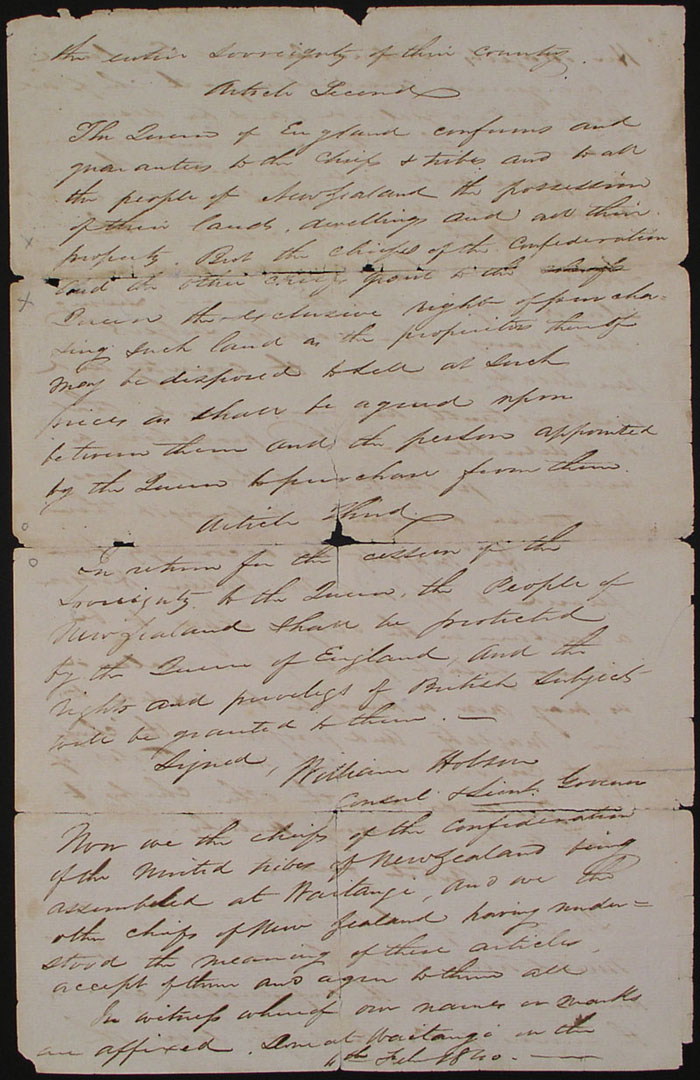 the entire Sovreignty of their country.
Article Second
The Queen of England confirms and
guarantees to the chiefs & tribes and to all
the people of New Zealand the possession
of their lands, dwellings and all their
property. But the chiefs of the Confederation
and the other chiefs grant to the chiefs
Queen the exclusive right of purcha-
sing such land as the proprietors thereof
may be disposed to sell at such
prices as shall be agreed upon
between them and the person appointed
by the Queen to purchase from them.
Article Third
In return for the cession of the
Sovreignty to the Queen, the People of
New Zealand shall be protected
by the Queen of England, and the
rights and privileges of British subjects
will be granted to them. —
Signed, William Hobson
Consul & Lieut. Governor
Now we the chiefs of the Confederation
of the United tribes of New Zealand being
assembled at Waitangi, and we the
other chiefs of New Zealand having under=
stood the meaning of these articles,
accept of them and agree to them all
In witness whereof our names or marks
are affixed. Done at Waitangi on the
4th Feb. 1840. —